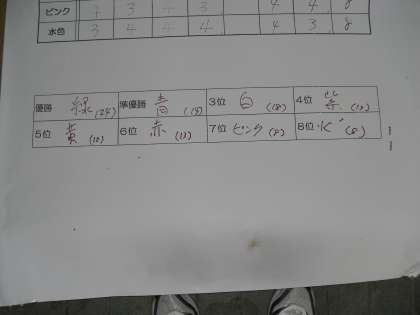 ピンク 3 4 3 4 4 8
水色 3 4 4 4 4 3 8
優勝 緑 (24) 準優勝 青 (19) 3位 白 (18) 4位 紫
5位 黄 6位 赤 7位 ピンク (8) 8位 水 (8)